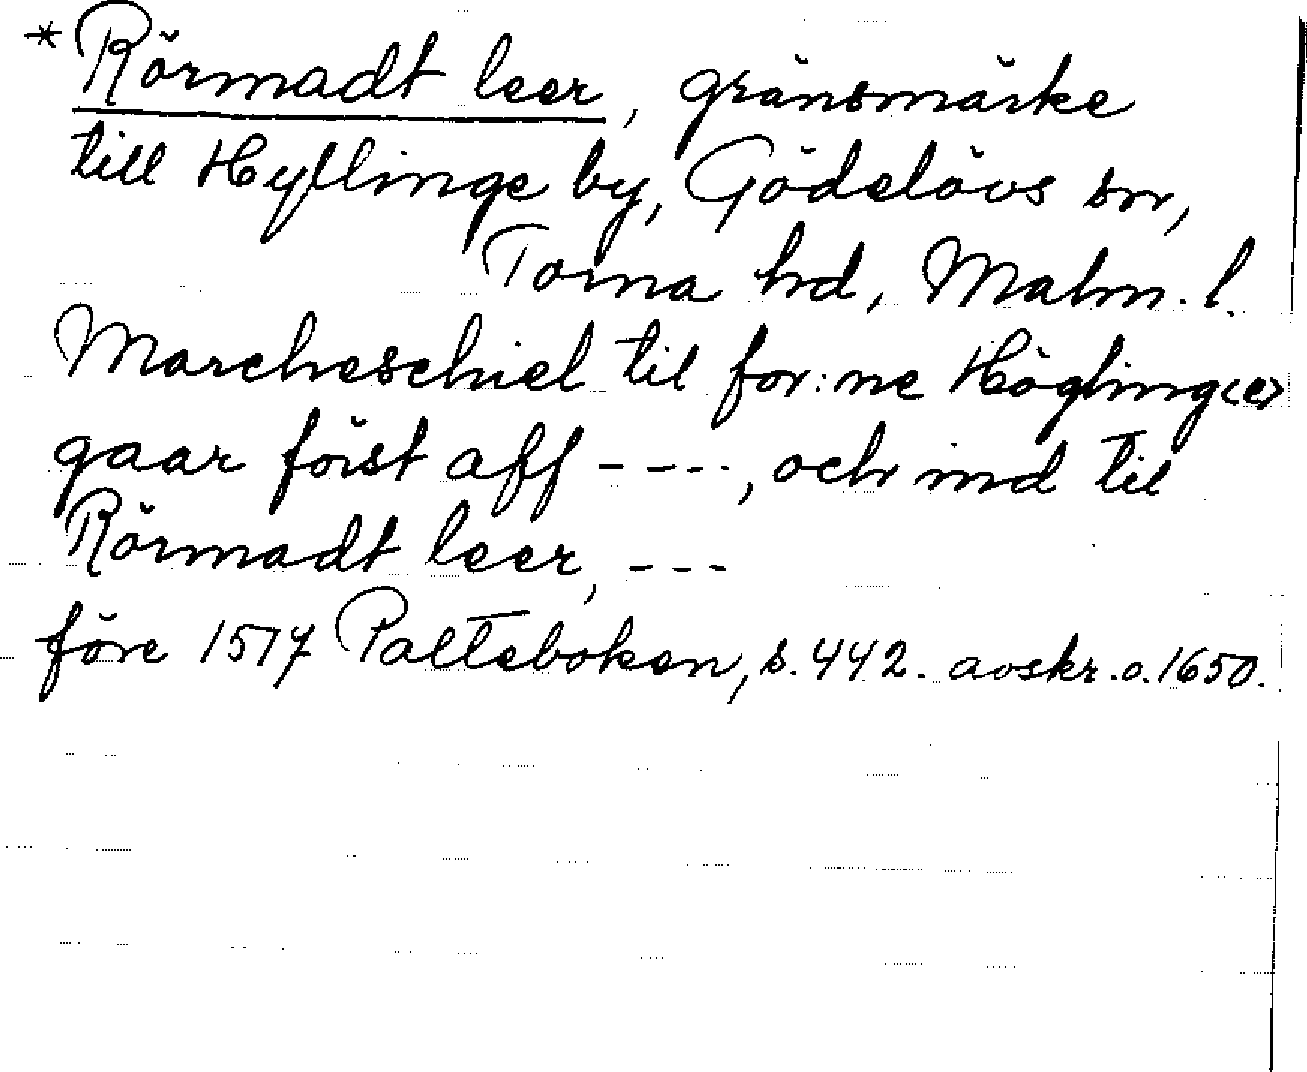 * Rörmadt leer, gränsmärke
till Hyllinge by, Gödelövs sn,
Torna hd, Malm. l.
Marcheschiel til for:ne Högling<e>
gaar föist aff ----, och ind til
Rörmadt leer, ---
före 1517 Palteboken, s. 442. avskr. o. 1650.